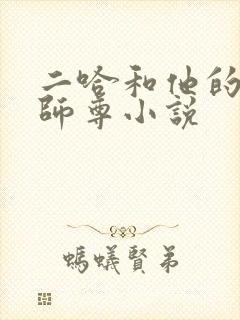 二哈和他的
師尊小説
螞蟻賢弟